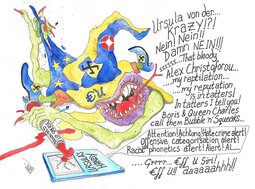 Ursula von der...
KRAZY!?!
Nein! Nein!!
Damn NEIN!!!
.....That bloody
Alex Christoforou....
...my reptilation...
...my reputation,
..is in tatters!
In tatters I tell you!
Boris & Queen Charles
call them Bubble n' Squeaks...
Attention! Achtung! Hate crime alert!
Offensive, categorisation alert!
Rachel phonetics alert! Alert! A!....
.... Grrrr... €ff u Siri!
€ff U! aaaaaahhh!!